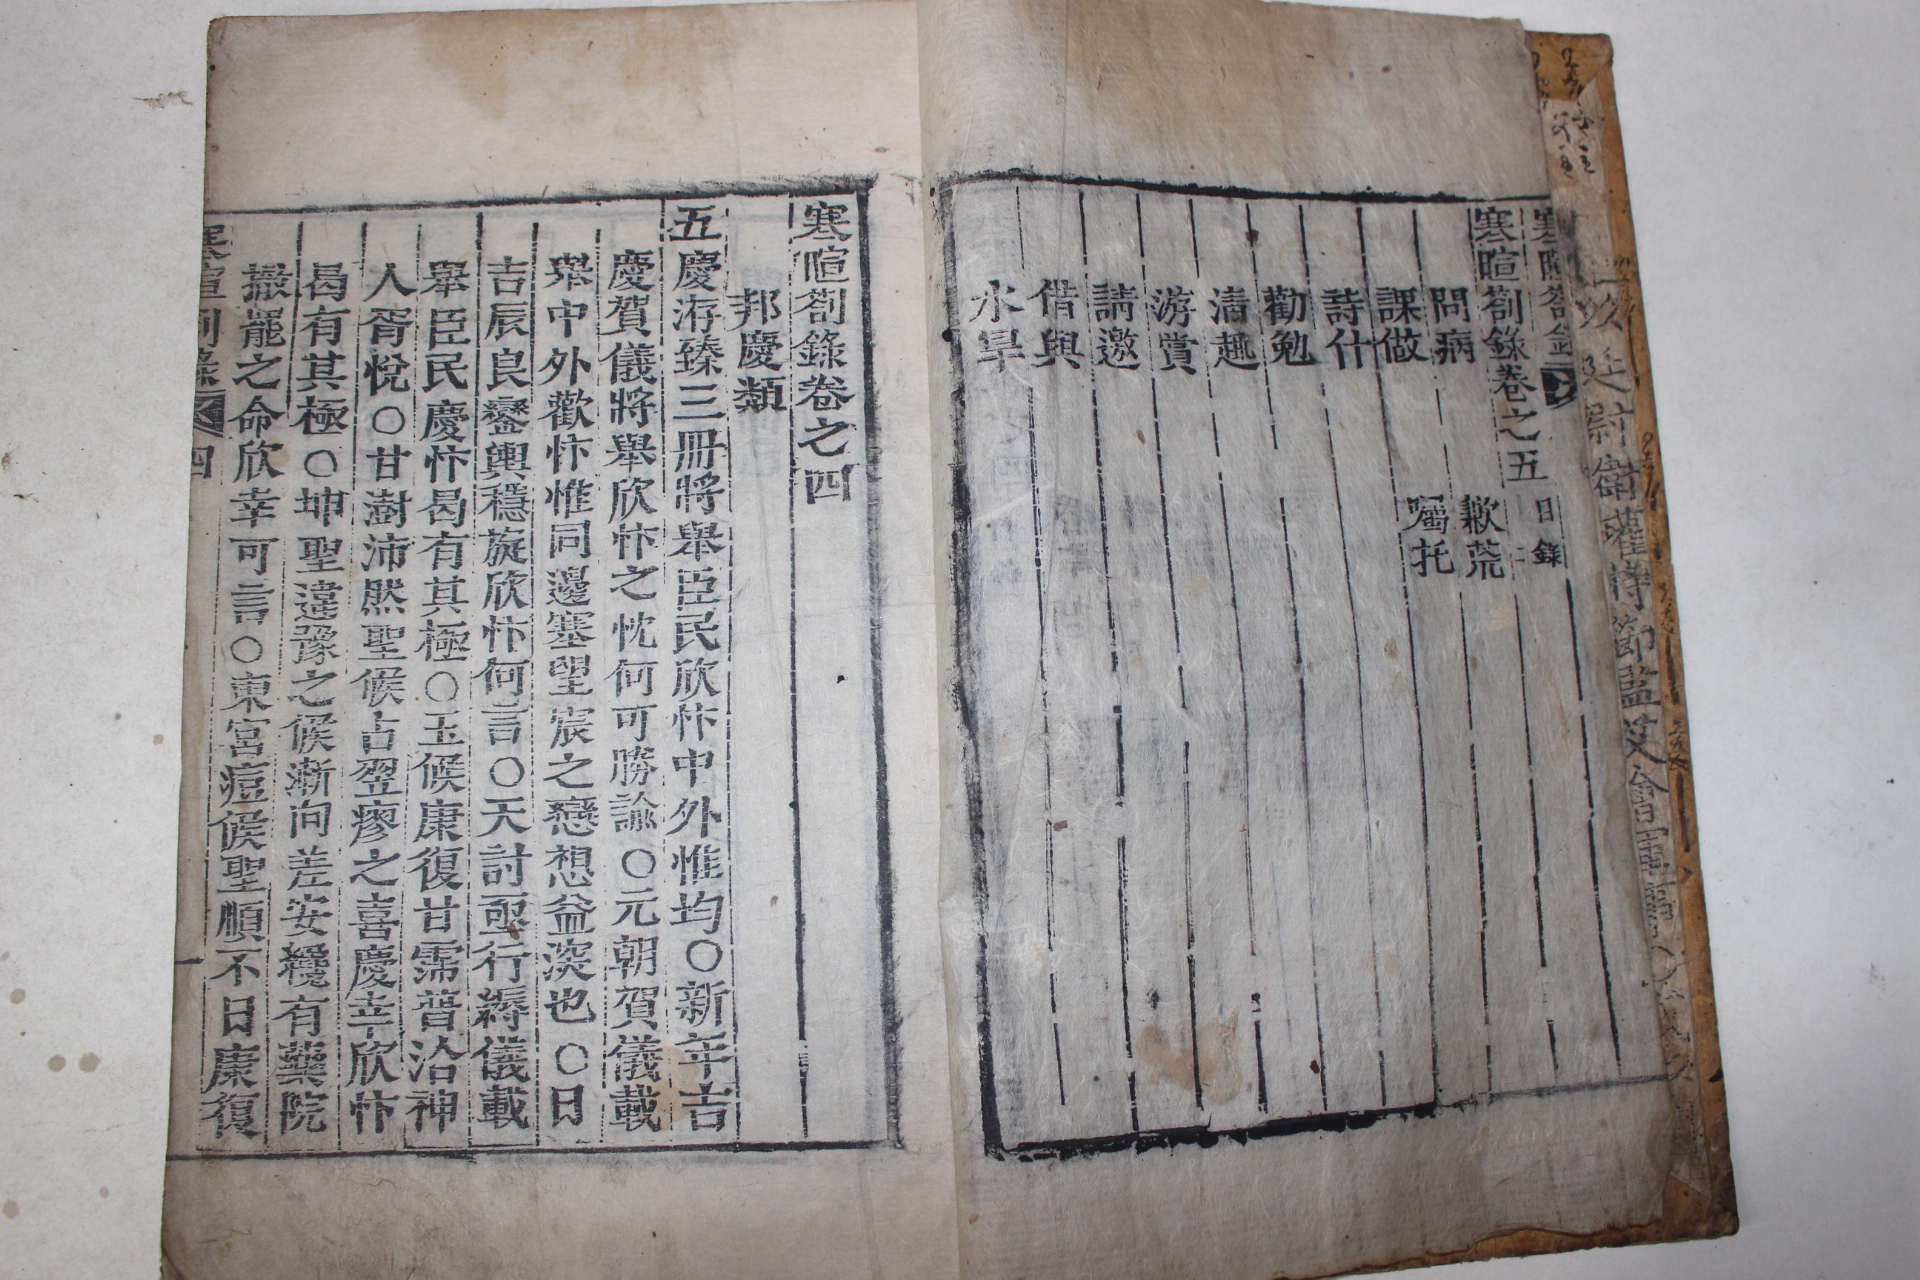 寒暄劄錄卷之五
問病
歉荒
課做
囑托
詩什
勸勉
淸趣
游賞
請邀
借與
水旱
目錄
二
寒暄劄錄卷之四
邦慶類
五慶洊臻三冊將舉臣民欣忭中外惟均〇新年吉
慶賀儀將舉欣忭之忱何可勝諭〇元朝賀儀載
舉中外歡忭惟同邊塞望宸之戀想益深也〇日
吉辰良鑾輿穩旋欣忭何言〇天討亟行縟儀載
舉臣民慶忭曷有其極〇玉候康復甘霈普洽神
人胥悅〇甘澍沛然聖候占翌瘳之喜慶幸欣忭
曷有其極〇坤聖違豫之候漸向差安纔有藥院
撤罷之命欣幸可言〇東宮痘候聖順不日康復
寒暄劄錄
四
一